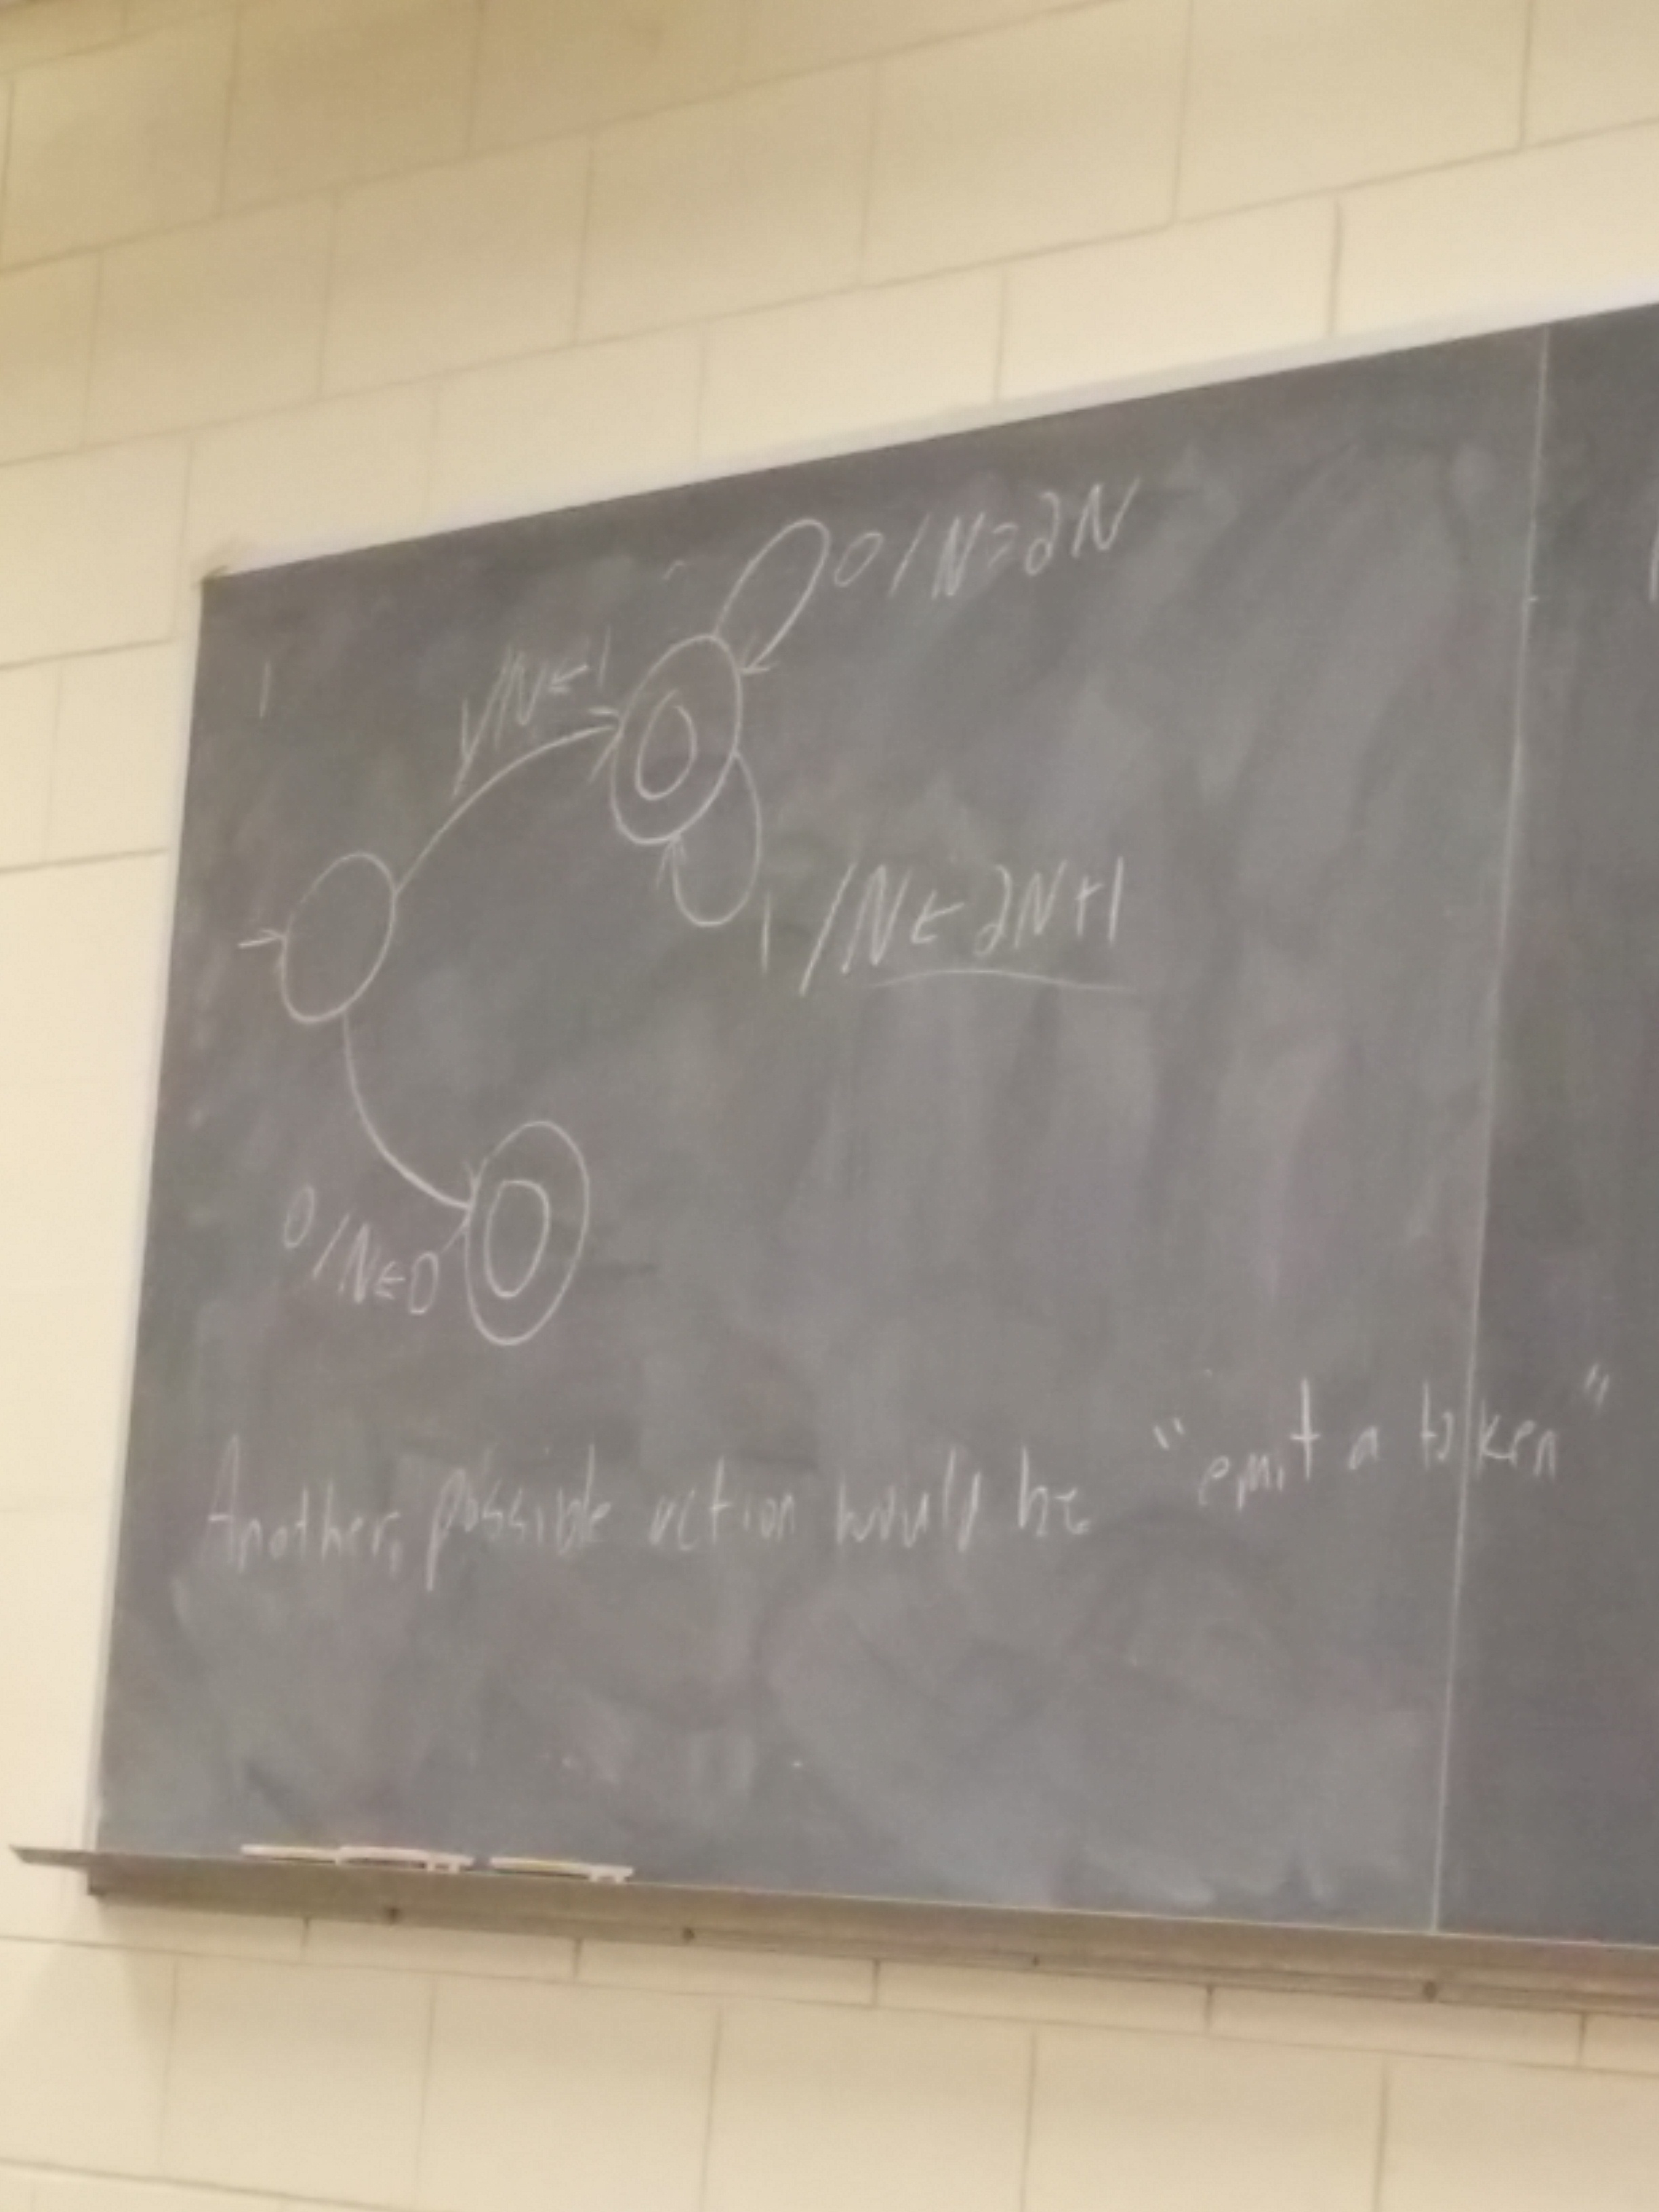 0/N=2N
1/N←1
1/N←2N+1
0/N←0
Another, possible action would be "emit a token"